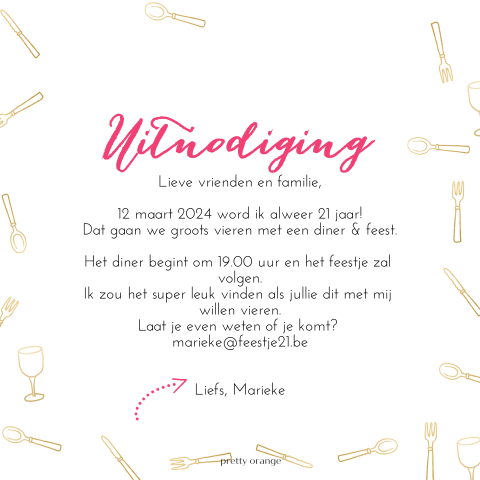 Uitnodiging
Lieve vrienden en familie,
12 maart 2024 word ik alweer 21 jaar!
Dat gaan we groots vieren met een diner & feest.
Het diner begint om 19.00 uur en het feestje zal
volgen.
Ik zou het super leuk vinden als jullie dit met mij
willen vieren.
Laat je even weten of je komt?
marieke@feestje21.be
Liefs, Marieke
pretty orange